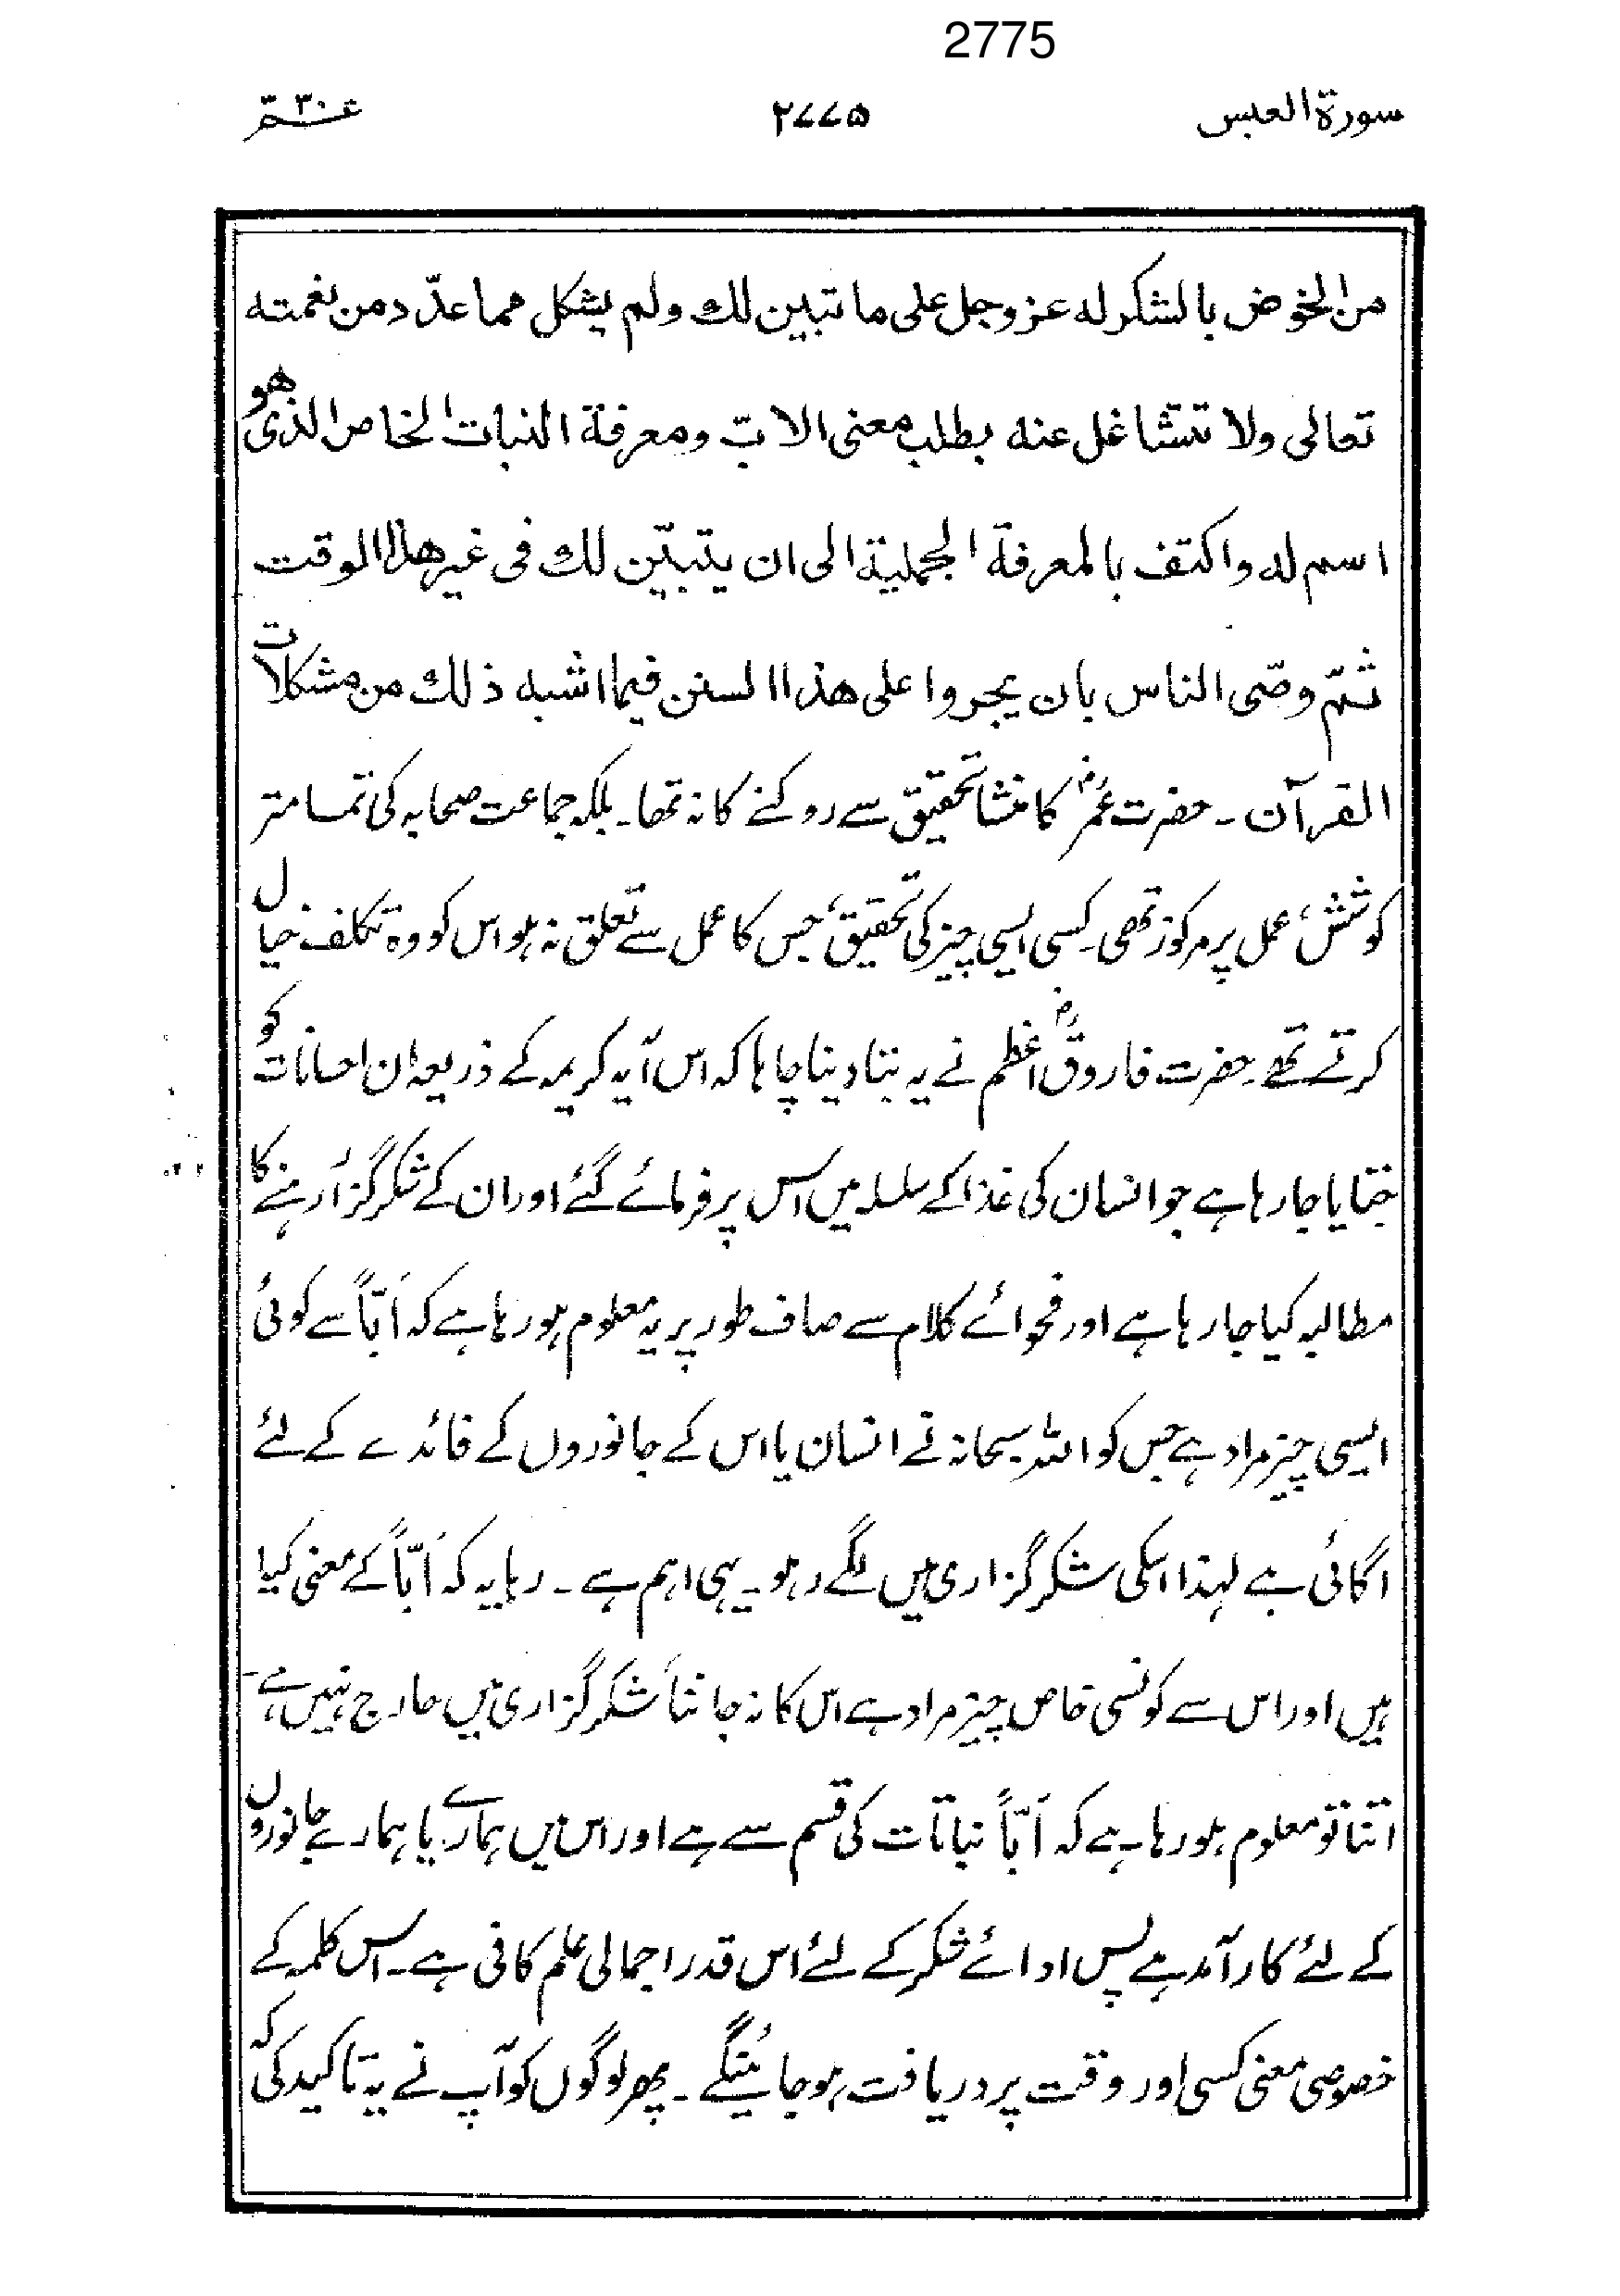 2775
سورة العبس ۲۷۷۵ عـمّ ۳۰
من الخوض بالشکر له عز وجل علی ما تبین لك ولم یشکل مما عدّد من نعمته
تعالی ولا تتشاغل عنه بطلب معنی الابّ ومعرفة النبات الخاص الذی هو
اسم له واکتف بالمعرفة الجملیة الی ان یتبیّن لك فی غیر هذا الوقت
ثمّ وصّی الناس بان یجروا علی هذا السنن فیما اشبه ذلك من مشکلات
القرآن ۔ حضرت عمرؓ کا منشا تحقیق سے روکنے کا نہ تھا ۔ بلکہ جماعت صحابہ کی تمامتر
کوشش عمل پر مرکوز تھی۔ کسی ایسی چیز کی تحقیق، جس کا عمل سے تعلق نہ ہو اس کو وہ تکلف خیال
کرتے تھے۔ حضرت فاروقؓ اعظم نے یہ بتا دینا چاہا کہ اس آیہ کریمہ کے ذریعہ ان احسانات کو
جتایا جارہا ہے جو انسان کی غذا کے سلسلہ میں اس پر فرمائے گئے اور ان کے شکر گزار رہنے کا
مطالبہ کیا جارہا ہے اور فحوائے کلام سے صاف طور پر یہ معلوم ہورہا ہے کہ اَبّاً سے کوئی
ایسی چیز مراد ہے جس کو اللہ سبحانہ نے انسان یا اس کے جانوروں کے فائدے کے لئے
اگائی ہے لہذا اسکی شکر گزاری میں لگے رہو ۔ یہی اہم ہے ۔ رہا یہ کہ اَبّاً کے معنی کیا
ہیں اور اس سے کونسی خاص چیز مراد ہے اس کا نہ جاننا شکر گزاری میں حارج نہیں ہے۔
اتنا تو معلوم ہورہا ہے کہ اَبّاً نباتات کی قسم سے ہے اور اس میں ہمارے یا ہمارے جانوروں
کے لئے کار آمد ہے پس ادائے شکر کے لئے اس قدر اجمالی علم کافی ہے ۔ اس کلمہ کے
خصوصی معنی کسی اور وقت پر دریافت ہوجائینگے ۔ پھر لوگوں کو آپ نے یہ تاکید کی کہ